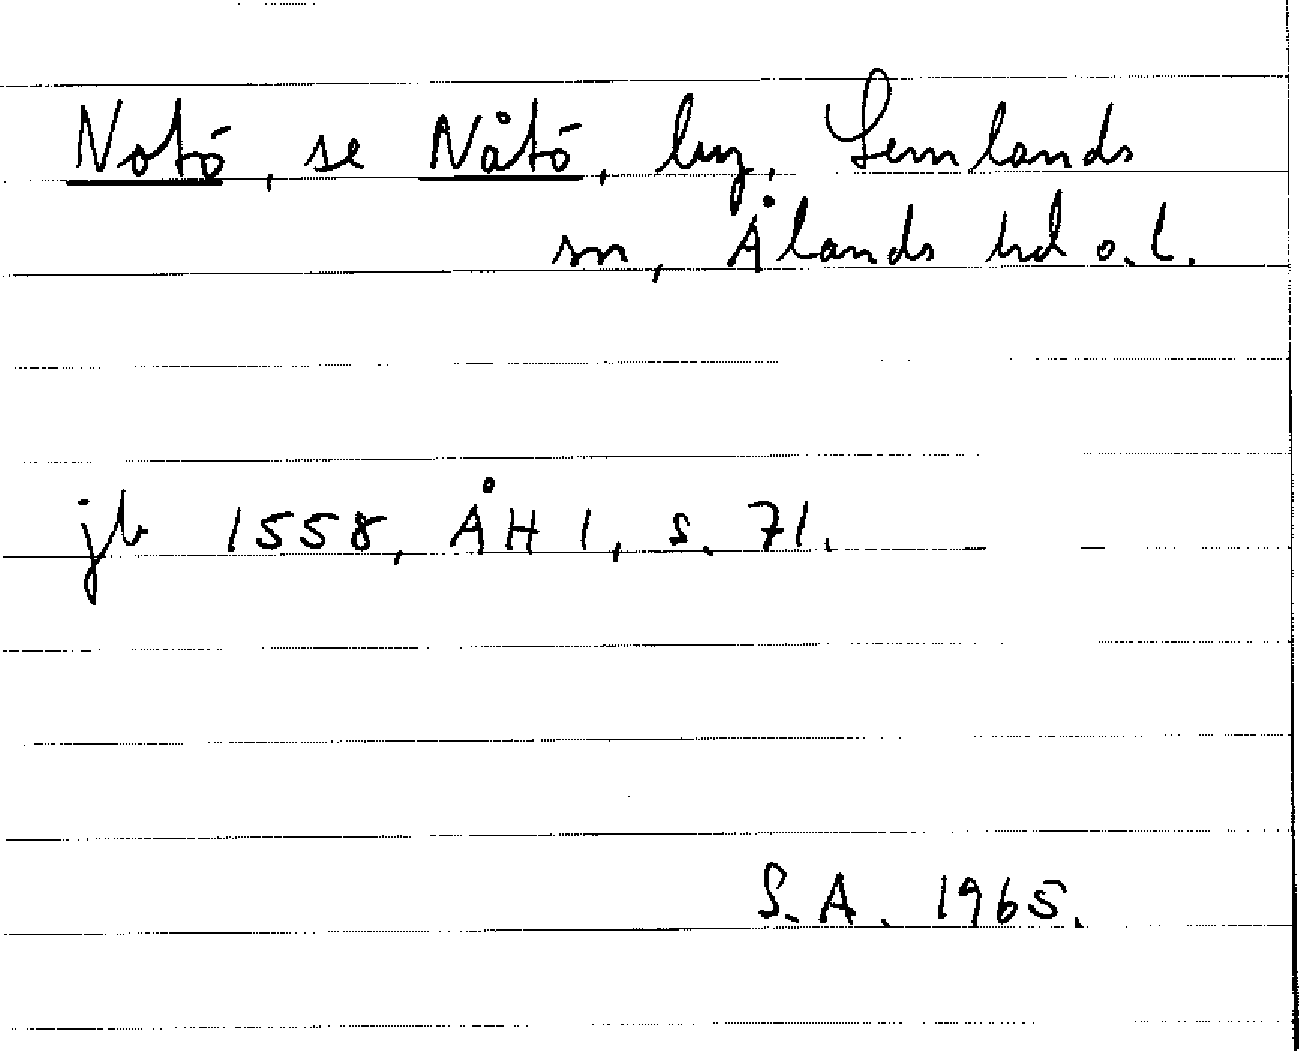 Notö, se Nåtö, by, Lemlands
sn, Ålands hd o. l.
jb 1558, ÅH 1, s. 71.
S.A. 1965.